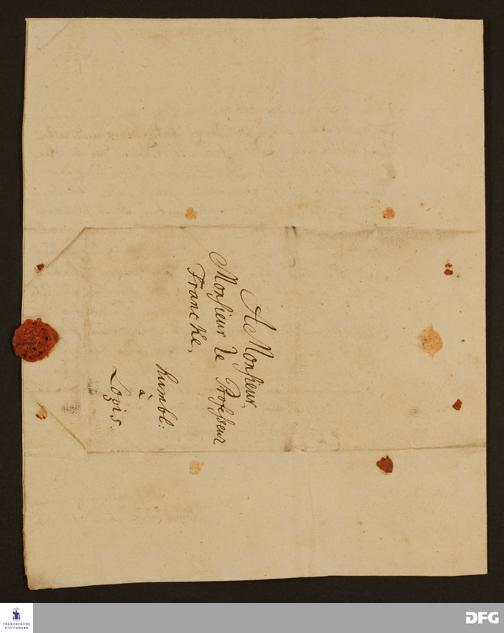 A Monsieur,
Monsieur le Professeur
Francke,
humbl:
à
Logis.
FRANCKESCHE
STIFTUNGEN
DFG